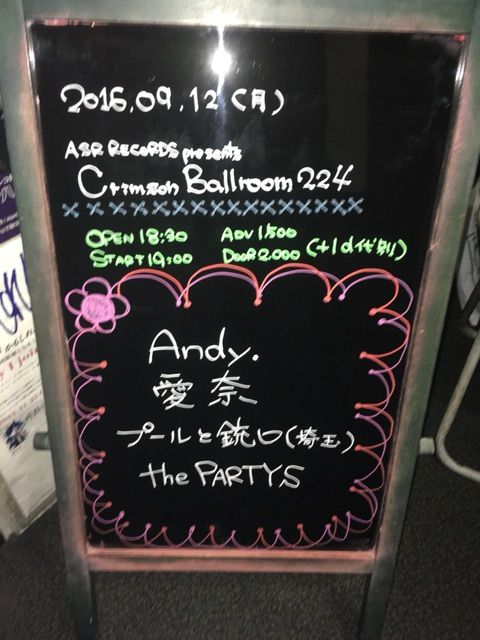 2016.09.12(月)
ASR RECORDS presents
Crimson Ballroom 224
××××××××××××××××××
OPEN 18:30 ADV 1,500
START 19:00 DOOR 2,000 (+1d代別)
Andy.
愛奈
プールと銃口(埼玉)
the PARTYS